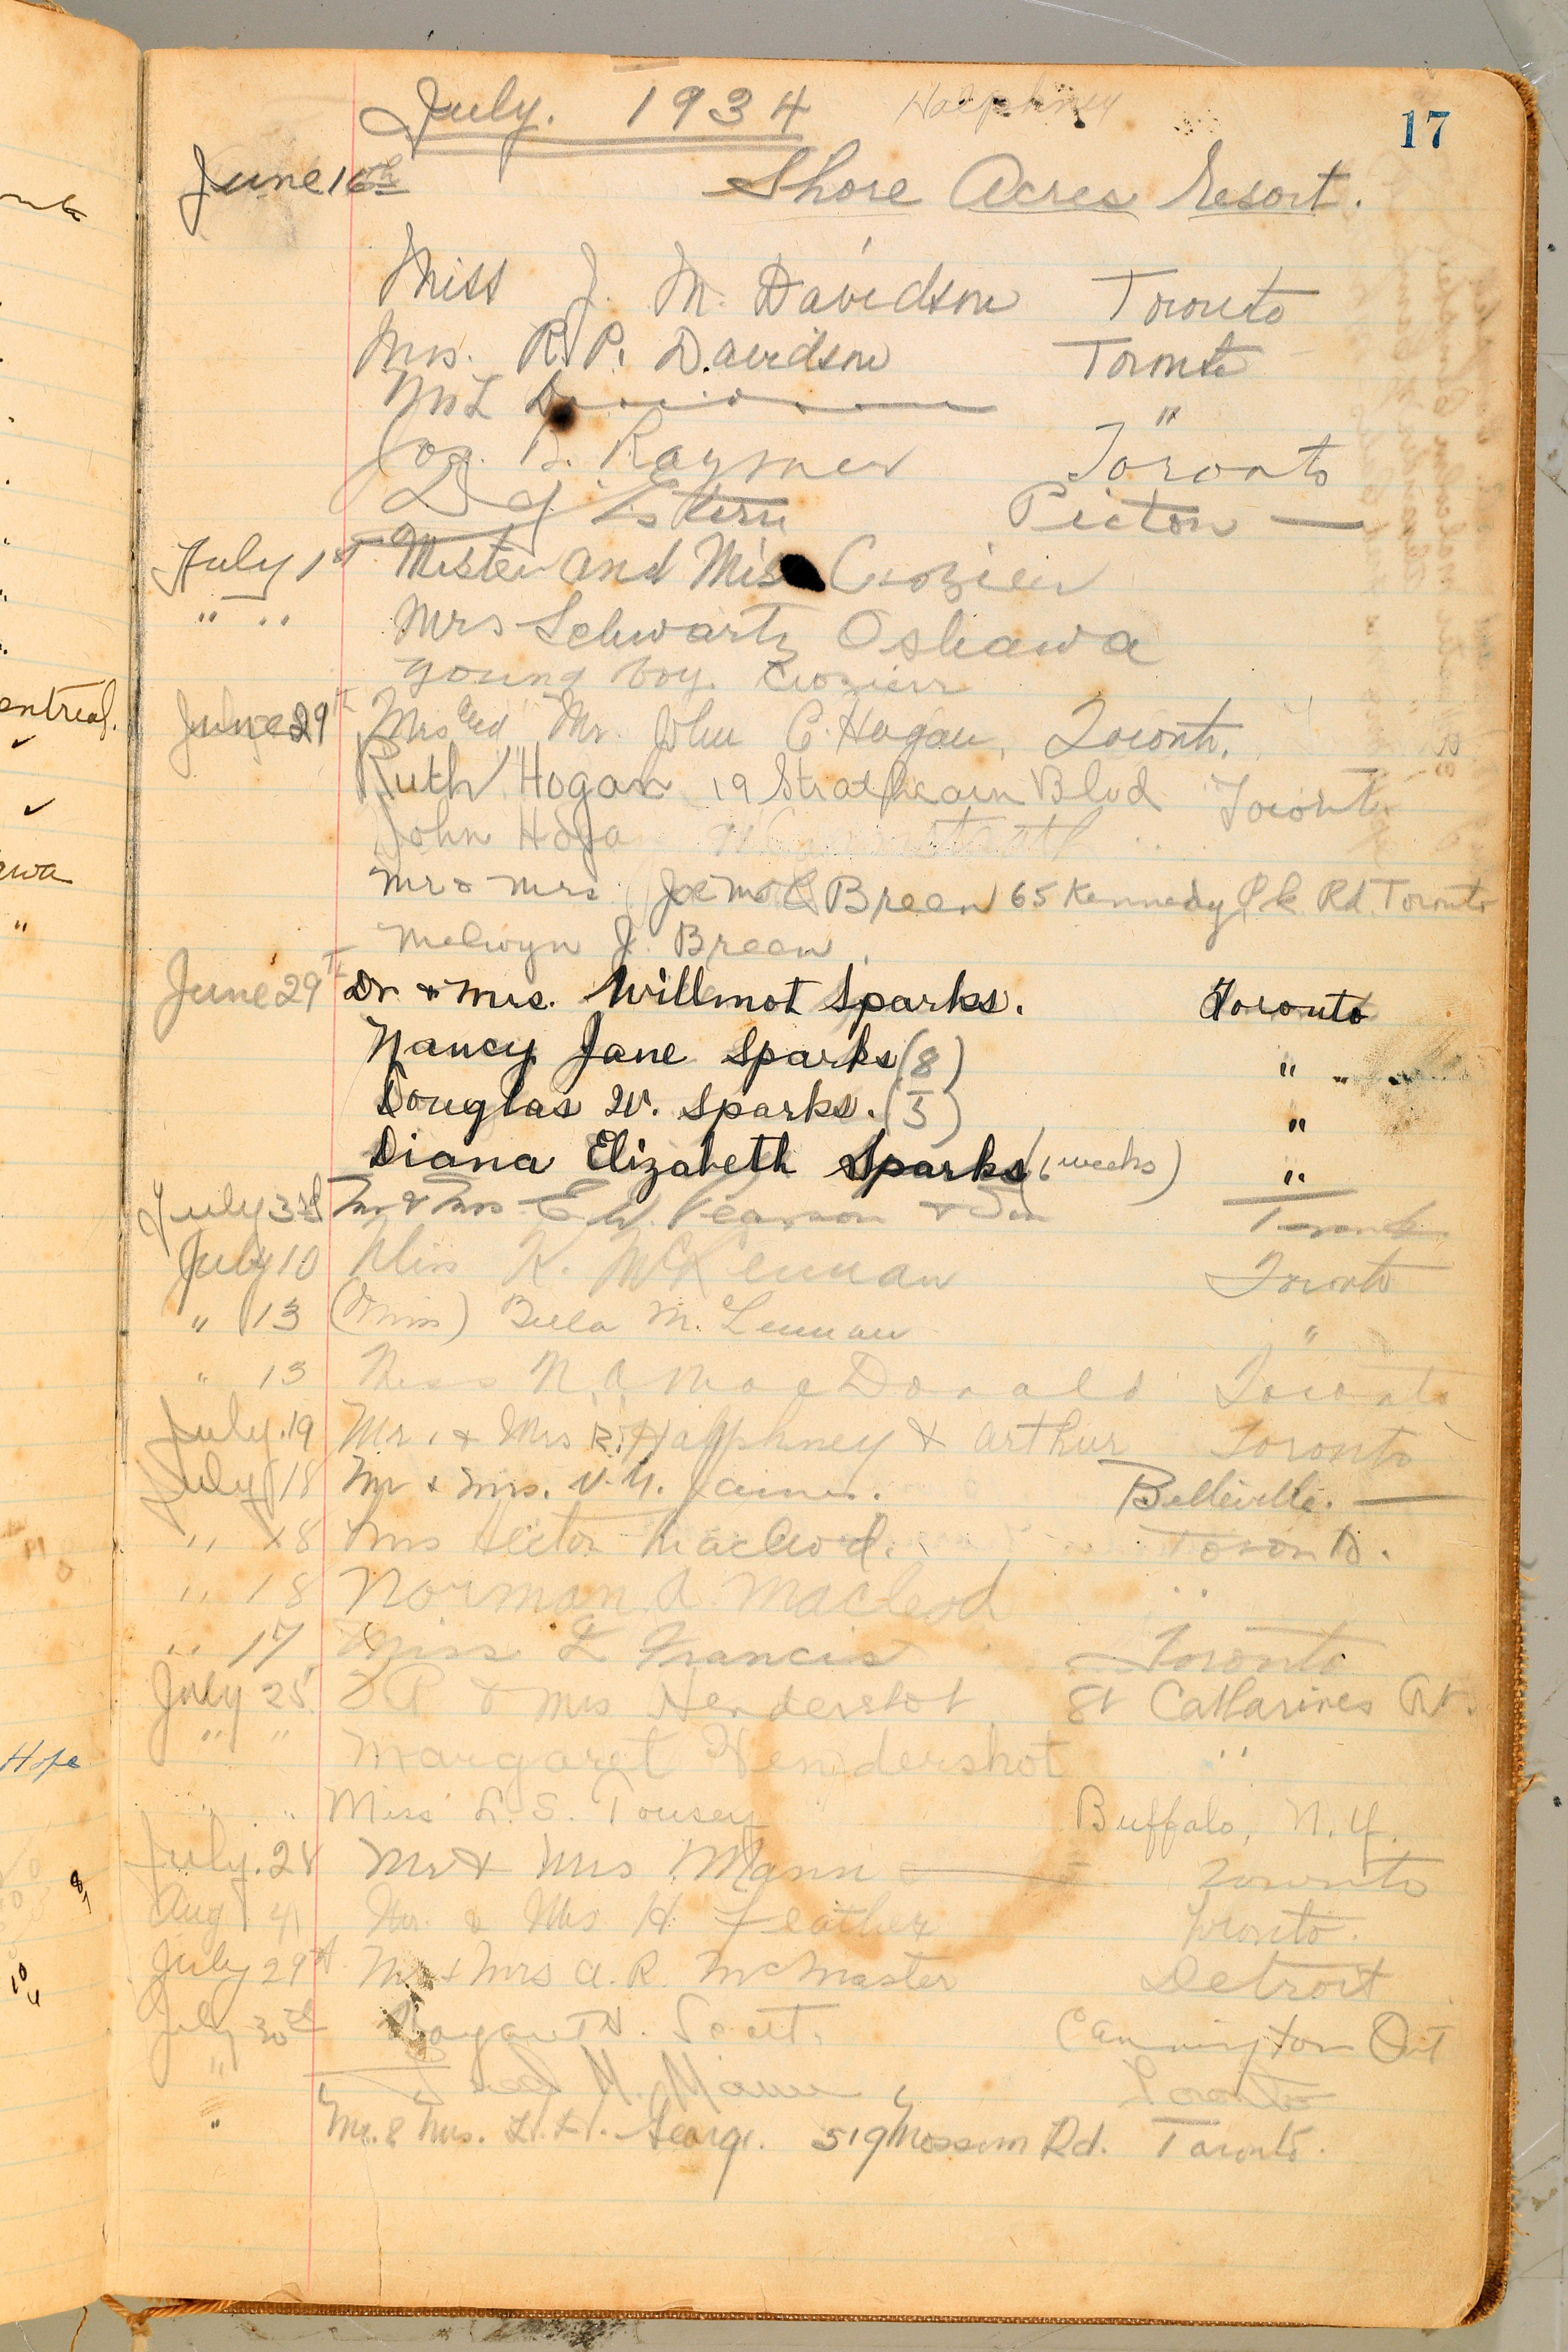 July. 1934 Halphney
17
June 16th Shore Acres Resort.
Miss J. M. Davidson Toronto
Mrs. R. P. Davidson Toronto
"
Jos. B. Raymer Toronto
Picton —
July 1st Mister and Miss Crozier
" " Mrs Schwartz Oshawa
young boy. Crozier
June 29th Mrs and Mr. John C. Hogan, Toronto.
Ruth Hogan 19 Strathearn Blvd Toronto
John Hoga
Mr & Mrs. Joe Breen 65 Kennedy Pk Rd. Toronto
Melwyn J. Breen
June 29th Dr. & Mrs. Willmot Sparks. Toronto
Nancy Jane Sparks (8) "
Douglas W. Sparks. (5) "
Diana Elizabeth Sparks (6 weeks) "
July 3rd Mr & Mrs E. W. Pearson & Son Toronto
July 10 Miss K. McKennan Toronto
" 13 (Miss) Bella M. Lennan "
" 13 Miss N. A. MacDonald Toronto
July. 19 Mr. & Mrs R. Halphney & Arthur Toronto
July 18 Mr & Mrs. Belleville. —
" 18 Mrs Hector MacLeod. Toronto.
" 18 Norman A. MacLeod "
" 17 Miss L Francis Toronto
July 25 & Mrs Hendershot St Catharines Ont.
" " Margaret Hendershot "
" " Miss L. S. Tousey Buffalo, N.Y.
July. 28 Mr & Mrs Mann — Toronto
Aug 4 Mr. & Mrs H. Feather Toronto.
July 29th Mr & Mrs A. R. McMaster Detroit
July 30th Scott. Cannington Ont
" M. Mann Toronto
" Mr. & Mrs. 519 Mossom Rd. Toronto.